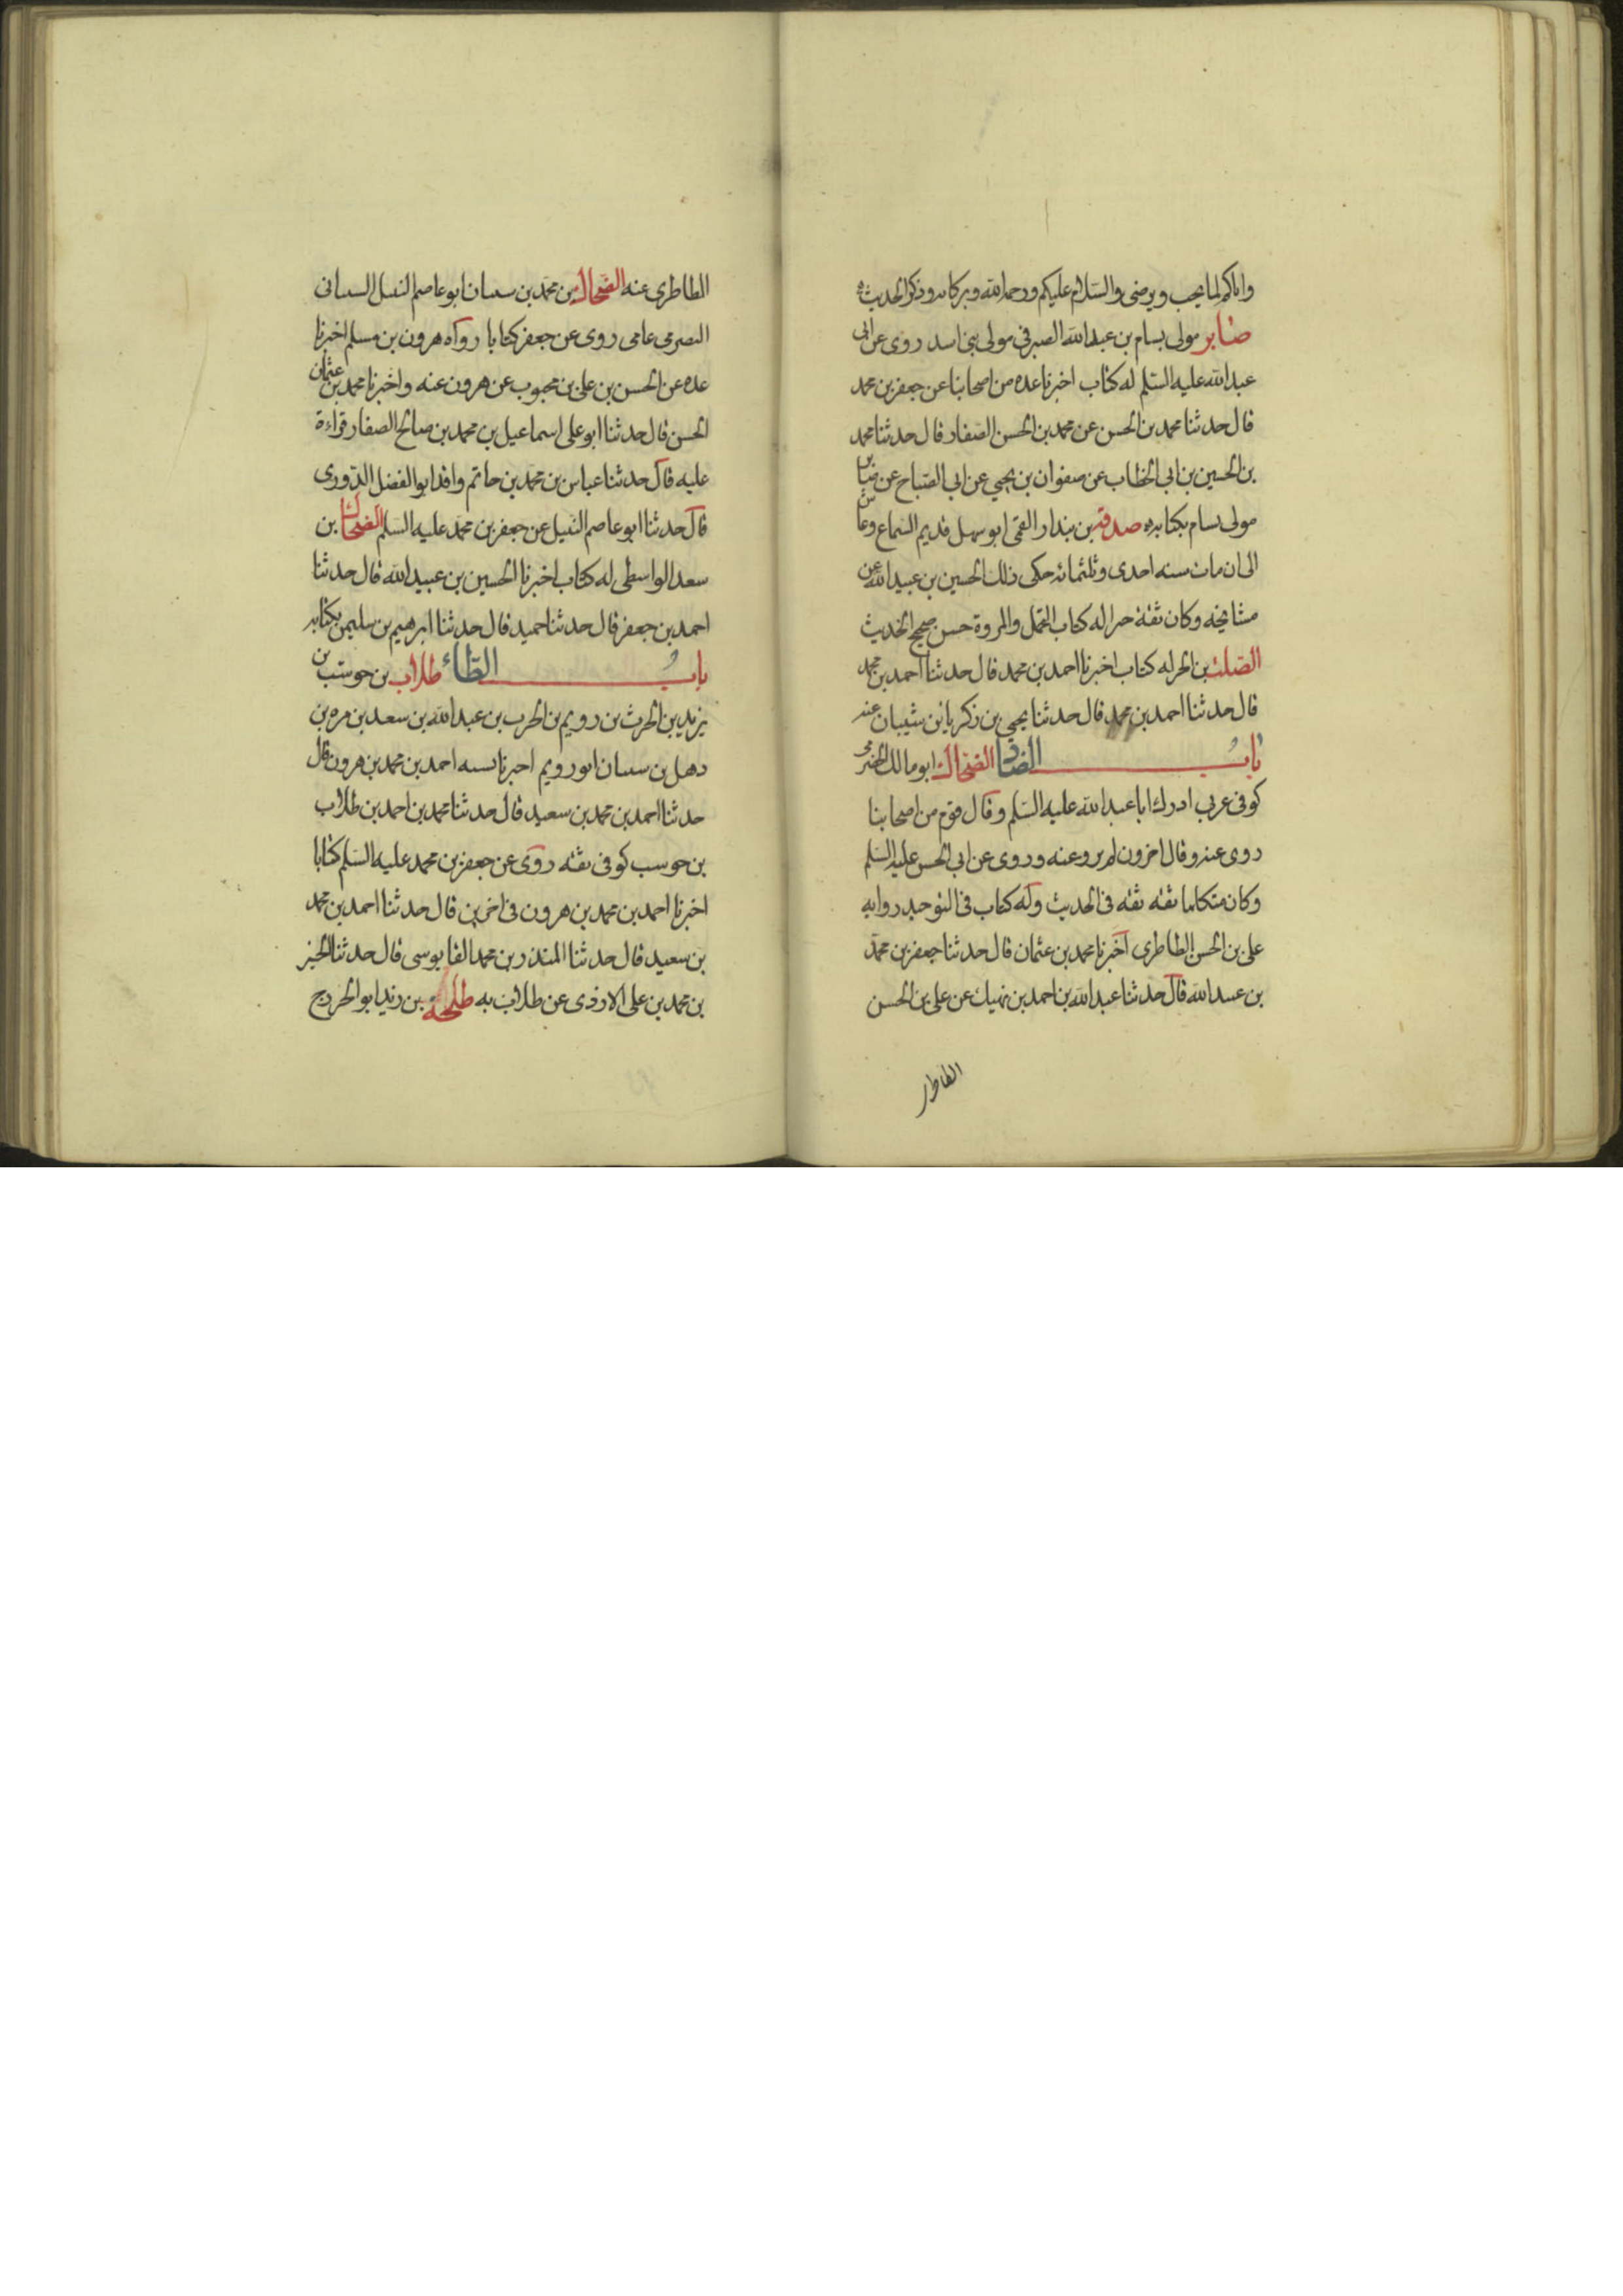 واياكم لما يحب ويرضى والسلام عليكم ورحمة الله وبركاته وذكر الحديث
صابر مولى بسام بن عبدالله الصيرفي مولى بني اسد روى عن ابي
عبدالله عليه السلم له كتاب اخبرنا عده من اصحابنا عن جعفر بن محمد
قال حدثنا محمد بن الحسن عن محمد بن الحسن الصفار قال حدثنا محمد
بن الحسين بن ابي الخطاب عن صفوان بن يحيى عن ابي الصباح عن صابر
مولى بسام بكتابه صدقة بن بندار القمي ابو سهل قديم السماع وعاش
الى ان مات سنه احدى وثلثمائه حكى ذلك الحسين بن عبيد الله عن
مشايخه وكان ثقة خيرا له كتاب التجمل والمروة حسن صحيح الحديث
الصلت بن الحر له كتاب اخبرنا احمد بن محمد قال حدثنا احمد بن محمد
قال حدثنا احمد بن محمد قال حدثنا يحيى بن زكريا بن شيبان عنه
باب الضاد الضحاك ابو مالك الحضرمي
كوفي عربي ادرك ابا عبد الله عليه السلم وقال قوم من اصحابنا
روى عنه وقال اخرون لم يرو عنه وروى عن ابي الحسن عليه السلم
وكان متكلما ثقه ثقه في الحديث وله كتاب في التوحيد روايه
على بن الحسن الطاطرى اخبرنا محمد بن عثمان قال حدثنا جعفر بن محمد
بن عبيد الله قال حدثنا عبد الله بن احمد بن نهيك عن على بن الحسن
الطاطر
الطاطرى عنه الضحاك بن محمد بن سىىان ابو عاصم النبيل السىىانى
البصرى عامى روى عن جعفر كتابا رواه هرون بن مسلم اخبرنا
عده عن الحسن بن على بن محبوب عن هرون عنه واخبرنا محمد بن عثمان
الحسن قال حدثنا ابو على اسماعيل بن محمد بن صالح الصفار قراءة
عليه قال حدثنا عباس بن محمد بن حاتم واقد ابو الفضل الدورى
قال حدثنا ابو عاصم النبيل عن جعفر بن محمد عليه السلم الضحاك بن
سعد الواسطى له كتاب اخبرنا الحسين بن عبيد الله قال حدثنا
احمد بن جعفر قال حدثنا حميد قال حدثنا ابرهيم بن سليمن بكتابه
باب الطاء طلاب بن حوشب بن
يزيد بن الحرث بن رويم بن الحرب بن عبد الله بن سعد بن مره بن
دهل بن سىىان ابو رويم اخبرنا نسبه احمد بن محمد بن هرون قال
حدثنا احمد بن محمد بن سعيد قال حدثنا محمد بن احمد بن طلاب
بن حوسب كوفى ثقه روى عن جعفر بن محمد عليه السلم كتابا
اخبرنا احمد بن محمد بن هرون فى اخرين قال حدثنا احمد بن محمد
بن سعيد قال حدثنا المنذر بن محمد القابوسى قال حدثنا الخير
بن محمد بن على الازدى عن طلاب به طلحة بن زيد ابو الخزرج